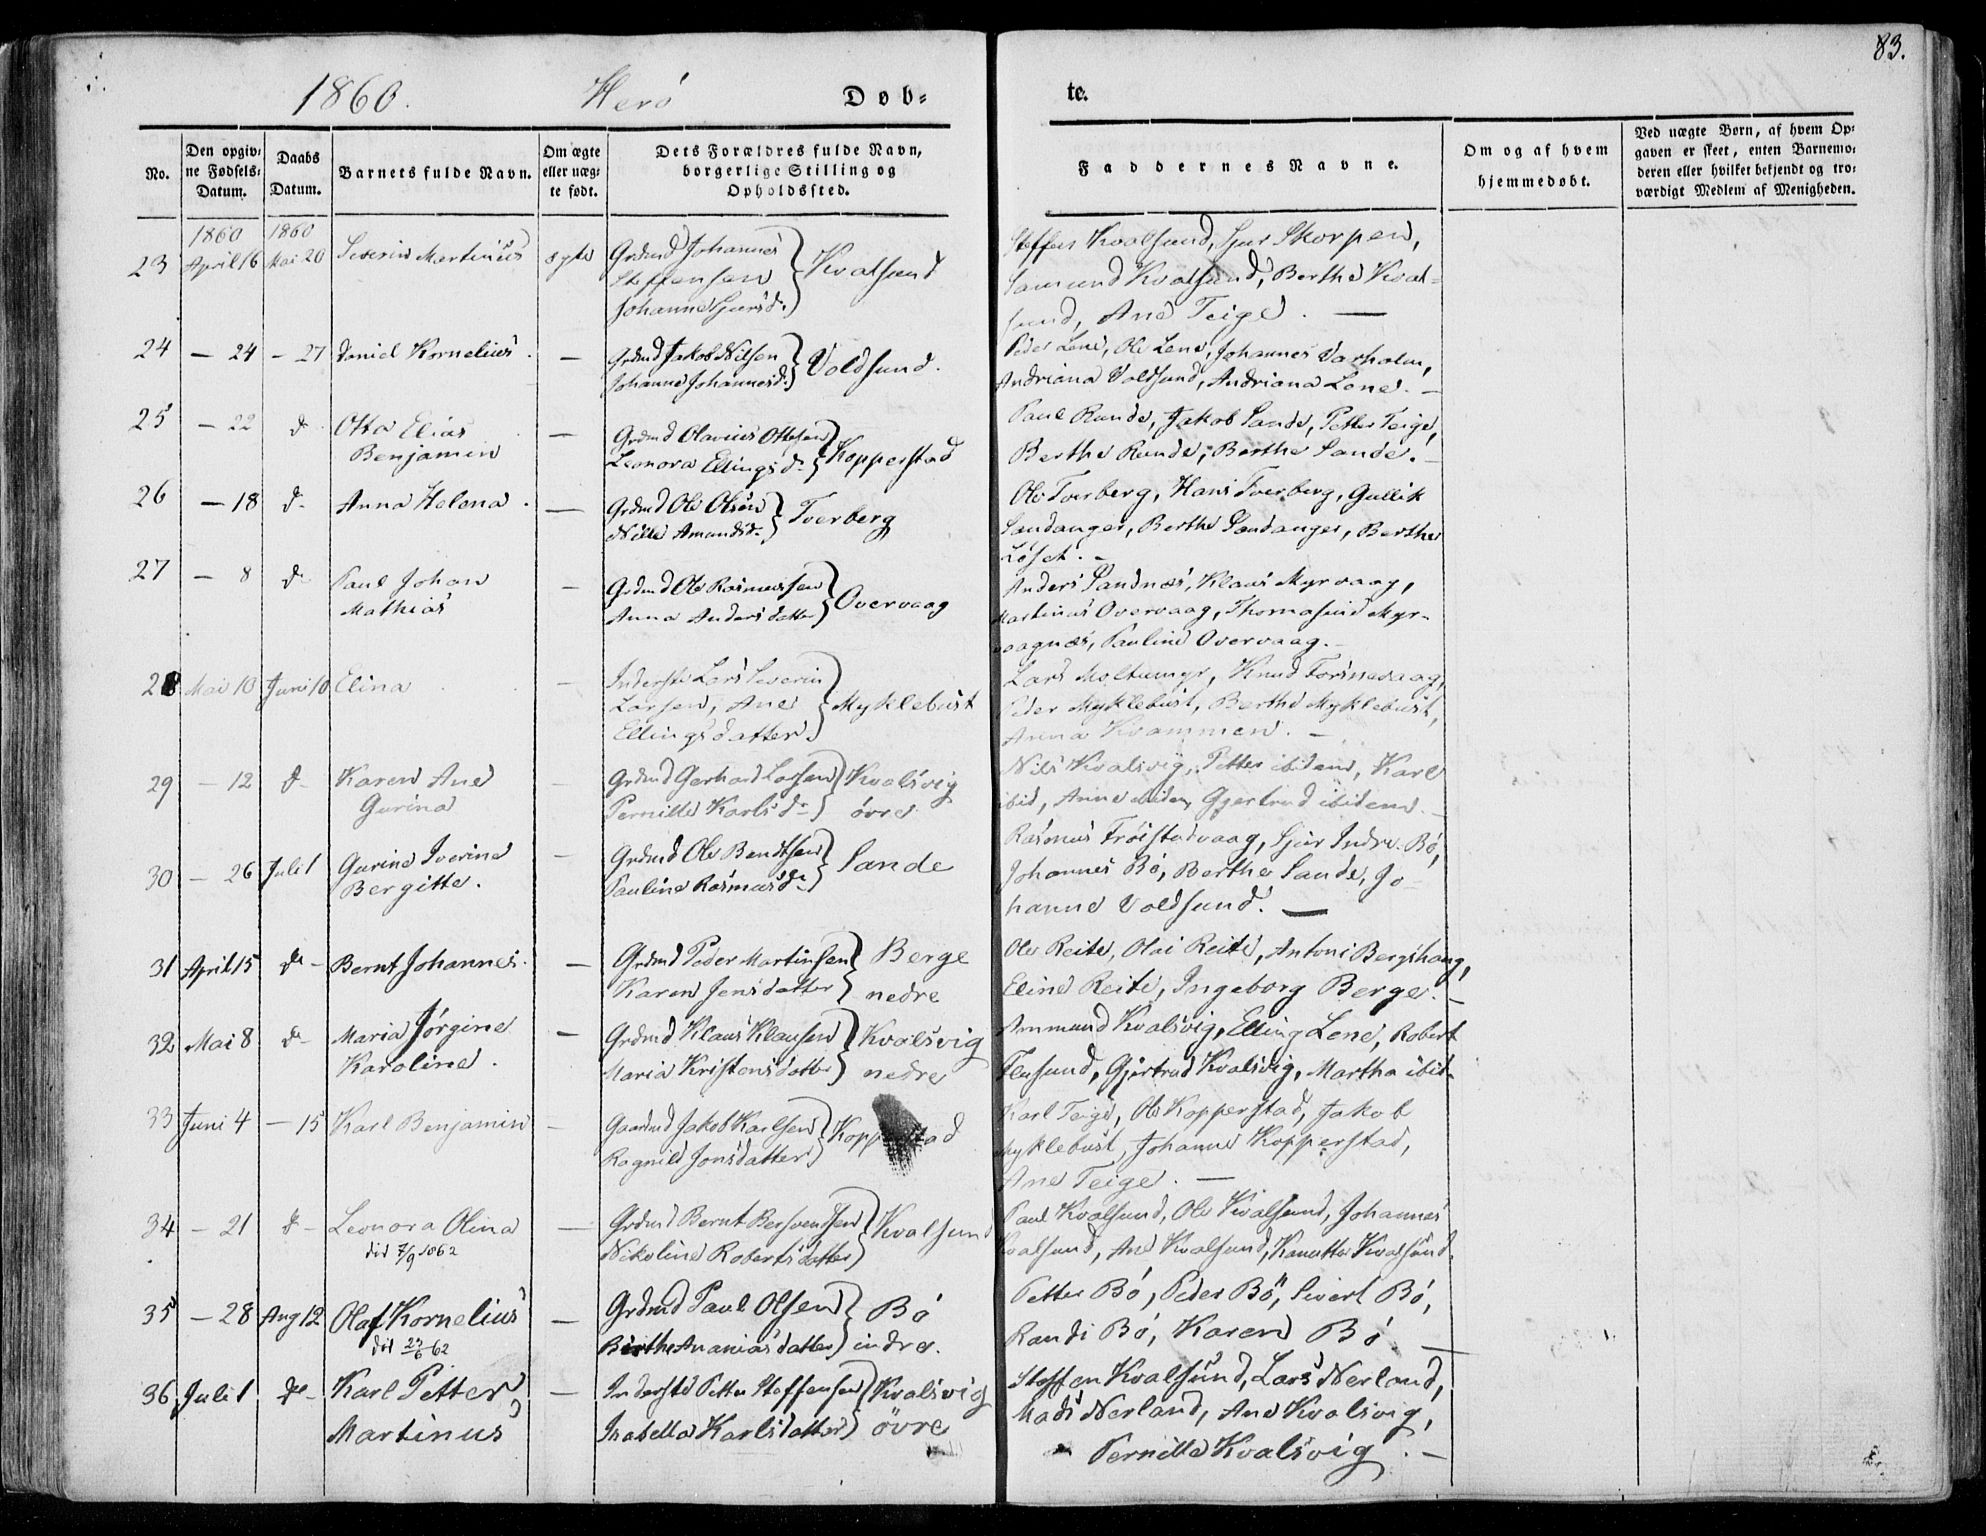 83.
1860. Herö Døb-
te.
No.
Den opgiv-
ne Fødsels-
Datum.
Daabs
Datum.
Barnets fulde Navn.
Om ægte
eller uæg-
te født.
Dets Forældres fulde Navn,
borgerlige Stilling og
Opholdssted.
Faddernes Navne.
Om og af hvem
hjemmedøbt.
Ved uægte Børn, af hvem Op-
gaven er skeet, enten Barnemo-
deren eller hvilket bekjendt og tro-
værdigt Medlem af Menigheden.
1860 1860
23 April 16 Mai 20 Severin Martinus ægte Grdmd Johannes
Steffensen
Johanne Sjursd. Kvalsund
Steffen Kvalsund, Sjur Skorpen,
Samund Kvalsund, Berthe Kval-
sund, Ane Teige. —
24 — 24 — 27 Daniel Kornelius. — Grdmd Jakob Nilsen
Johanne Johannesd. Voldsund.
Peder Lene, Ole Lene, Johannes Varholm,
Andriana Voldsund, Andriana Lene. —
25 — 22 do Otto Elias
Benjamin — Grdmd Olavius Ottesen
Leonora Ellingsd. Kopperstad
Paul Runde, Jakob Sande, Petter Teige,
Berthe Runde, Berthe Sande. —
26 — 18 do Anna Helena. — Grdmd Ole Olsen
Nille Amundsd. Tverberg
Ole Tverberg, Hans Tverberg, Gullik
Sandanger, Berthe Sandanger, Berthe
Løset. —
27 — 8 do Paul Johan
Mathias — Grdmd Ole Rasmussen
Anna Andersdatter Overvaag
Anders Sandnæs, Klaus Myrvaag,
Martinus Overvaag, Thomasine Myr-
vaagnæs, Pauline Overvaag. —
28 Mai 10 Juni 10 Elina — Inderste Lars Severin
Larsen, Ane
Ellingsdatter. Myklebust
Lars Moltumyr, Knud Fosnevaag,
Peder Myklebust, Berthe Myklebust,
Anna Kvammen. —
29 — 12 do Karen Ane
Gurina — Grdmd Gerhard Larsen
Pernille Karlsd. Kvalsvig
övre
Nils Kvalsvig, Petter ibidem, Karl
ibid, Anne ibidem, Gjertrud ibidem. —
30 — 26 Juli 1 Gurine Iverine
Bergitte. — Grdmd Ole Bendtsen
Pauline Rasmusd. Sande
Rasmus Frøistadvaag, Sjur Indre-Bö,
Johannes Bö, Berthe Sande, Jo-
hanne Voldsund. —
31 April 15 do — Bernt Johannes. — Grdmd Peder Martinsen
Karen Jensdatter Berge
nedre
Ole Reite, Olai Reite, Antoni Bergshaug,
Eline Reite, Ingeborg Berge. —
32 Mai 8 do Maria Jørgine
Karoline. — Grdmd Klaus Klausen
Maria Kristensdatter Kvalsvig
nedre
Ammund Kvalsvig, Elling Lene, Robert
Flusund, Gjertrud Kvalsvig, Martha ibid.
33 Juni 4 — 15 Karl Benjamin — Gaardmd Jakob Karlsen
Ragnild Jonsdatter Kopperstad
Karl Teige, Ole Kopperstad, Jakob
Myklebust, Johanne Kopperstad,
Ane Teige. —
34 — 21 do — Leonora Olina
död 7/9 1862 — Grdmd Bernt Bersvendsen
Nikoline Robertsdatter Kvalsund
Paul Kvalsund, Ole Kvalsund, Johannes
Kvalsund, Ane Kvalsund, Kanutte Kvalsund.
35 — 28 Aug 12 Olaf Kornelius
död 27/6 62 — Grdmd Paul Olsen
Berthe Ananiasdatter Bö
indre.
Petter Bö, Peder Bö, Sivert Bö,
Randi Bö, Karen Bö. —
36 Juli 1 do — Karl Petter
Martinus — Inderste Petter Steffensen
Isabella Karlsdatter Kvalsvig
övre
Steffen Kvalsund, Lars Nerland,
Mads Nerland, Ane Kvalsvig,
Pernille Kvalsvig. —